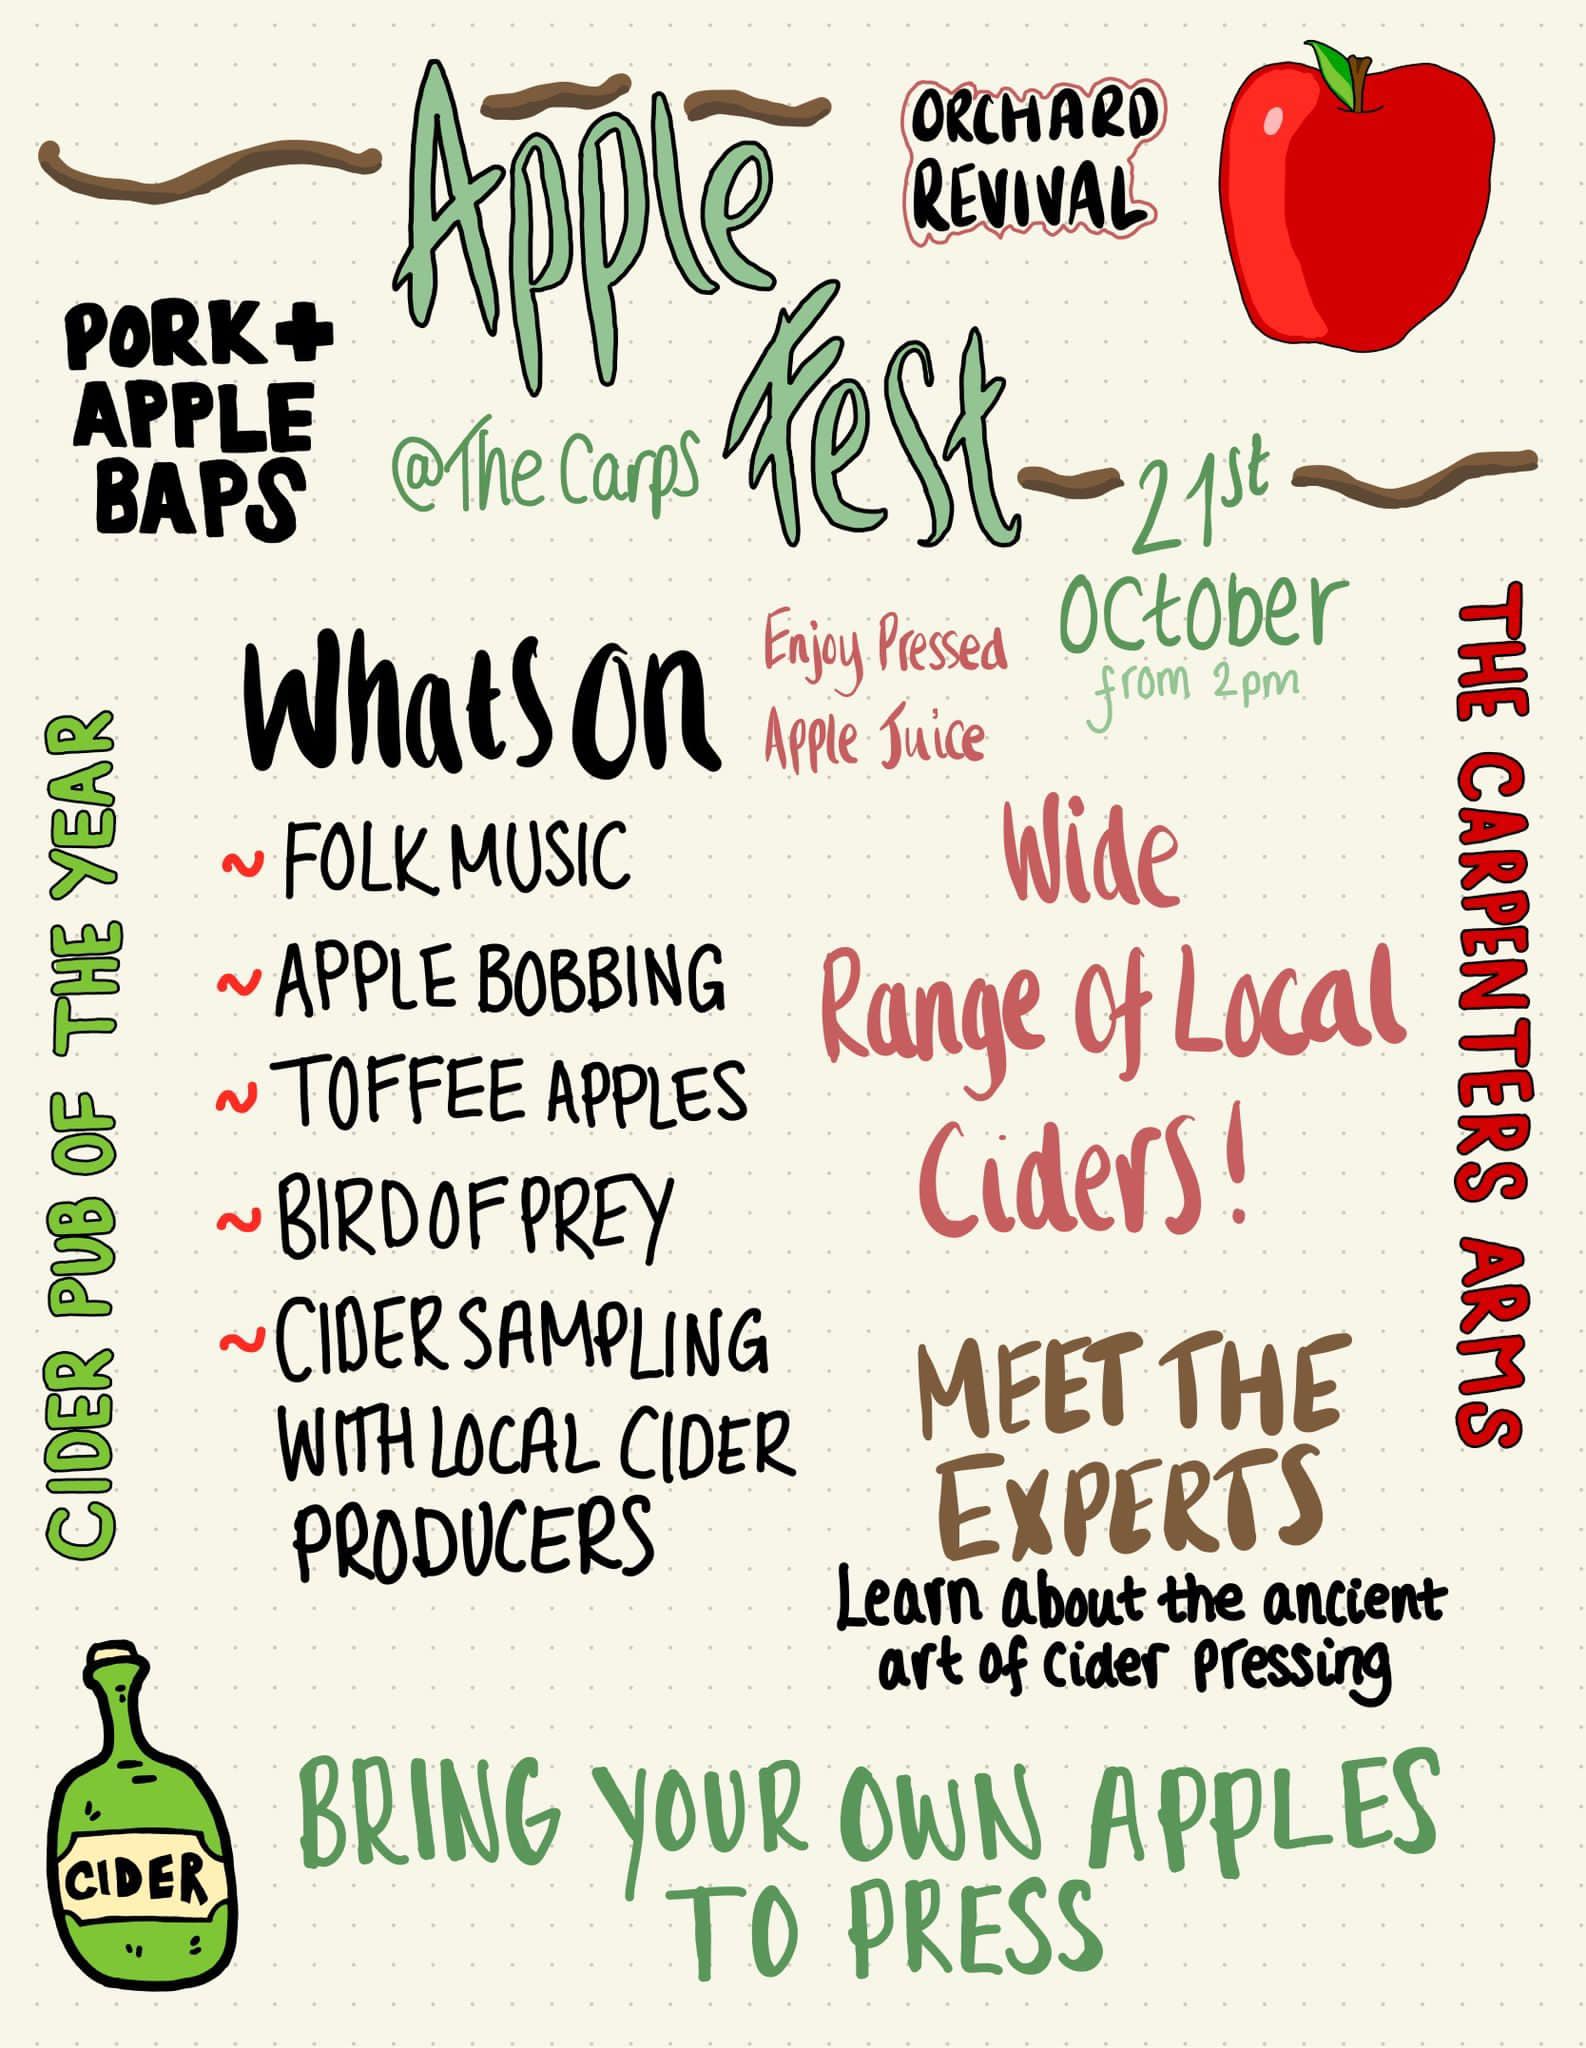 Apple
Fest
@The Carps
ORCHARD
REVIVAL
PORK +
APPLE
BAPS
21st
October
from 2pm
Enjoy Pressed
Apple Juice
Whats On
~ FOLK MUSIC
~ APPLE BOBBING
~ TOFFEE APPLES
~ BIRD OF PREY
~ CIDER SAMPLING
WITH LOCAL CIDER
PRODUCERS
CIDER PUB OF THE YEAR
THE CARPENTERS ARMS
Wide
Range Of Local
Ciders!
MEET THE
EXPERTS
Learn about the ancient
art of cider pressing
CIDER
BRING YOUR OWN APPLES
TO PRESS